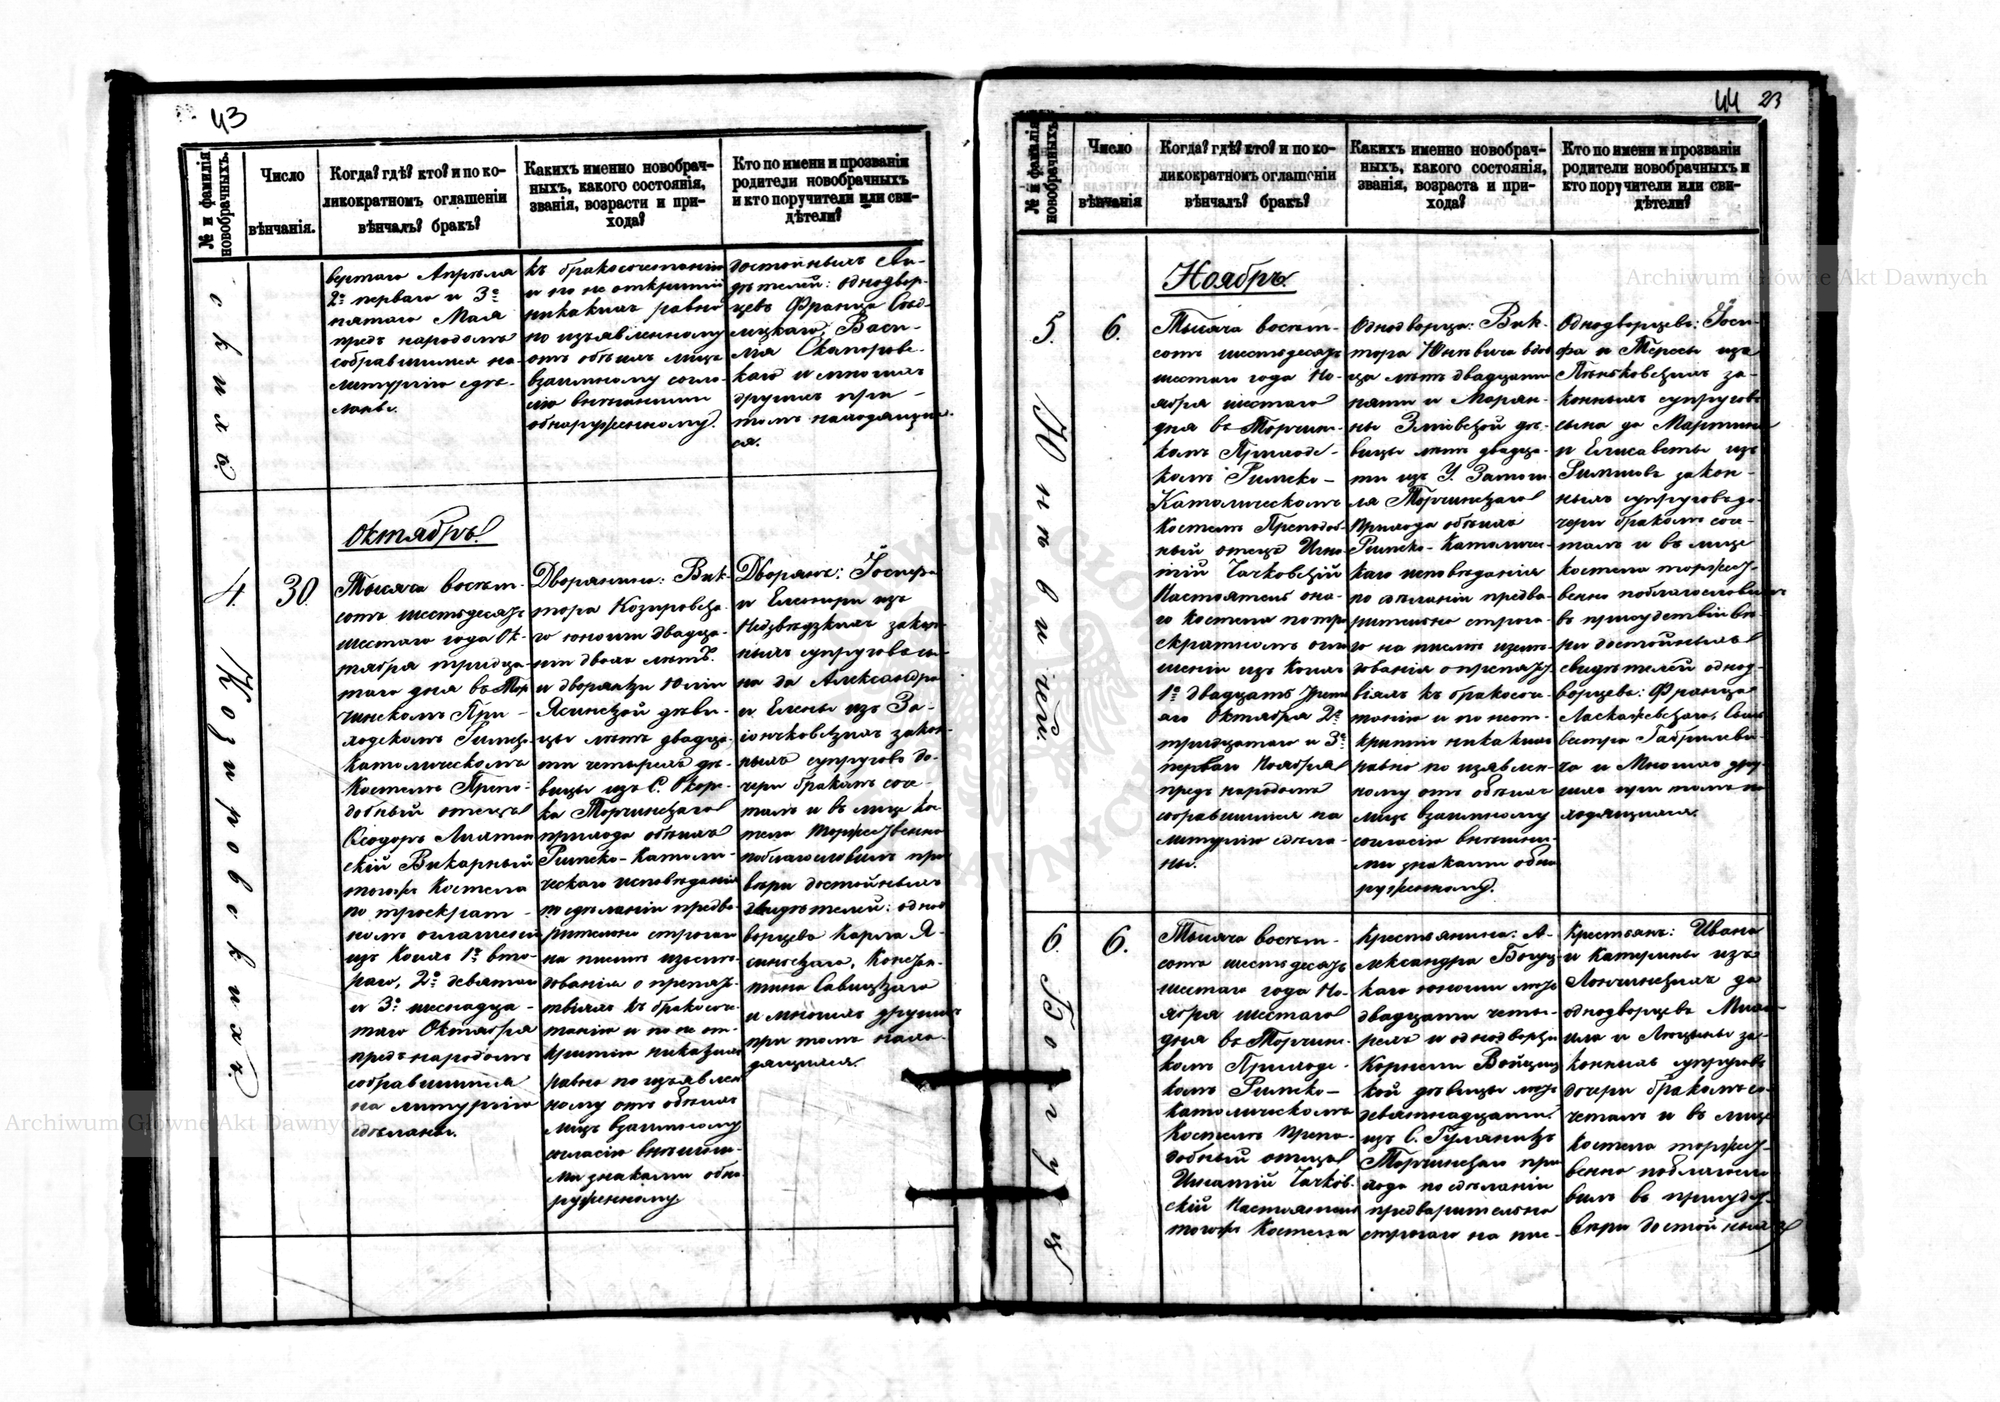 43
№ и фамилія новобрачныхъ.
Число
вѣнчанія.
Когда? гдѣ? кто? и по ко-
ликократномъ оглашеніи
вѣнчалъ? бракъ?
Какихъ именно новобрач-
ныхъ, какого состоянія,
званія, возрасти и при-
хода?
Кто по имени и прозваніи
родители новобрачныхъ
и кто поручители или сви-
дѣтели?
вертаго Апрѣля
2е перваго и 3е
пятаго Мая
предъ народомъ
собравшимся на
литургію сдѣ-
ланы.
къ бракосочетанію
и по не открытіи
никакихъ равно
по изъявленному
отъ обѣихъ лицъ
взаимному согла-
сію внѣшними
обнаруженному.
достойныхъ Сви-
дѣтелей: однодвор-
цевъ Франца Сѣд-
лецкаго, Васи-
лія
и многихъ
другихъ при
томъ находящих-
ся.
Октябрь.
4.
30.
Тысяча восемь-
сотъ шестьдесятъ
шестаго года Ок-
тября тридца-
таго дня въ Тор-
чинскомъ При-
ходскомъ Римско
Католическомъ
Костелѣ Препо-
добный отецъ
Ѳеодоръ
скій Викарный
тогожъ Костела
по троекрат-
номъ оглашеніи
изъ коихъ 1е вто-
раго, 2е девятаго
и 3е шеснадца-
таго Октября
предъ народомъ
собравшимся
на литургію
сдѣланы.
Дворянина: Вик-
тора Козировска-
го юношу двадца-
ти двохъ лѣтъ.
и дворянки Юліи
Ясинской дѣви-
цы лѣтъ двадца-
ти четырехъ дѣ-
вицы изъ С. Окор-
ка Торчинскаго
прихода обѣихъ
Римско-Католи-
ческаго исповѣданія
по сдѣланіи предва-
рительно строгаго
на письмѣ изслѣ-
дованія о препят-
ствіяхъ къ бракосоче-
танію и по не от-
крытіи никакихъ
равно по изъявлен-
ному отъ обѣихъ
лицъ взаимному
согласію внѣшни-
ми знаками обна-
руженному
Дворянъ: Іосифа
и Елеоноры изъ
Недзвѣдзкихъ закон-
ныхъ супруговъ сы-
на да Александра
и Елены изъ За-
іончковскихъ закон-
ныхъ супруговъ до-
чери бракомъ соче-
талъ и въ лицѣ ко-
стела торжественно
поблагословилъ при
вѣри достойныхъ
свидѣтелей: одно-
ворцевъ Карла Я-
синскаго, Констан-
тина Савицкаго
и многихъ другихъ
при томъ нахо-
дящихся.
44 23
№ и фамилія новобрачныхъ.
Число
вѣнчанія
Когда? гдѣ? кто? и по ко-
ликократномъ оглашеніи
вѣнчалъ? бракъ?
Какихъ именно новобрач-
ныхъ, какого состоянія,
званія, возраста и при-
хода?
Кто по имени и прозваніи
родители новобрачныхъ и
кто поручители или сви-
дѣтели?
Ноябрь.
5.
6.
Юневичъ.
Тысяча восемь-
сотъ шестьдесятъ
шестаго года Но-
ября шестаго
дня въ Торчин-
комъ Приход-
комъ Римско-
Католическомъ
Костелѣ Преподоб-
ный отецъ Игна-
тій Чачковскій
Настоятель она-
го Костела по трое-
скратномъ огла-
шеніи изъ коихъ
1е двадцать трет-
аго Октября 2е
тридцатаго и 3е
перваго Ноября
предъ народомъ
собравшимся на
литургію сдѣла-
ны.
Однодворца: Вик-
тора Юневича вдов-
ца лѣтъ двадцати
пяти и Маріан-
ны Зміевской дѣ-
вицы лѣтъ двадца-
ти изъ
Торчинскаго
прихода обѣихъ
Римско-Католичес-
каго исповѣданія
по сдѣланіи предва-
рительно строга-
го на письмѣ изслѣ-
дованія о препят-
ствіяхъ къ бракосоче-
танію и по неот-
крытіи никакихъ
равно по изъявлен-
ному отъ обѣихъ
лицъ взаимному
согласію внѣшни-
ми знаками обна-
руженному.
Однодворцевъ: Іоси-
фа и Тересы изъ
Пѣньковскихъ за-
конныхъ супруговъ
сына да Мартина
и Елисаветы изъ
закон-
ныхъ супруговъ до-
чери бракомъ соче-
талъ и въ лицѣ
костела торжест-
венно поблагословилъ
въ присудствіи вѣ-
ри достойныхъ
свидѣтелей однод-
ворцевъ: Франца
Ласкажевскаго, Силь-
вестра Габрилеви-
ча и Многихъ дру-
гихъ при томъ на-
ходящихся.
6.
6.
Богуцк
Тысяча восемь-
сотъ шестьдесятъ
шестаго года Но-
ября шестаго
дня въ Торчин-
комъ Приход-
комъ Римско-
Католическомъ
Костелѣ Препо-
добный отецъ
Игнатій Чачков-
скій Настоятель
тогожъ Костела
Крестьянина: А-
лександра Богуц-
каго юношу лѣтъ
двадцати четы-
рехъ и однодворки
Корнели Войциц-
кой дѣвицы лѣтъ
девятнадцати.
изъ С. Гуляникъ
Торчинскаго при-
хода по сдѣланіи
предварительно
строгаго на пис-
Крестьянъ: Ивана
и Катерины изъ
Лончинскихъ да
однодворцевъ Миха-
ила и Люцыны за-
конныхъ супруговъ
дочери бракомъ со-
четалъ и въ лицѣ
Костела торжест-
венно поблагосло-
вилъ въ присудст-
вѣри достойныхъ
Archiwum Główne Akt Dawnych
Archiwum Główne Akt Dawnych